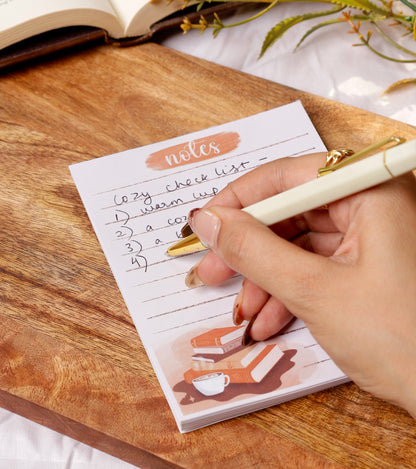 notes
cozy check list -
1) warm cup
2) a
3) a
4)